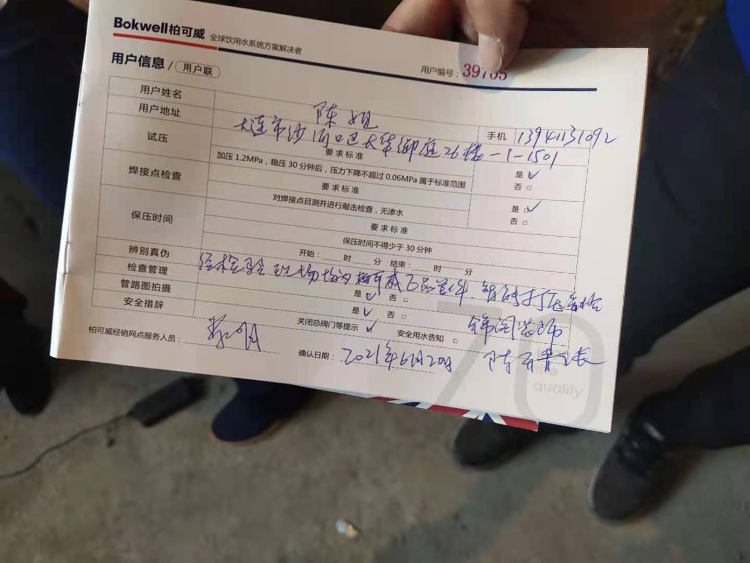 Bokwell柏可威 全球饮用水系统方案解决者
用户信息 / 用户联 用户编号：39705
用户姓名 陈姐 手机 13941131092
用户地址 大连市沙河口区大华御庭26楼-1-1501
试压 要求标准
加压1.2MPa，稳压30分钟后，压力下降不超过0.06MPa属于标准范围 是 否
焊接点检查 要求标准
对焊接点目测并进行敲击检查，无渗水 是 否
保压时间 要求标准
保压时间不得少于30分钟
开始： 时 分 结束： 时 分
辨别真伪 经检验现场均为柏可威正品管件
检查管理 是 否
管路图拍摄 是 否
安全措辞 关闭总阀门等提示 安全用水告知
柏可威经销网点服务人员：
确认日期： 2021年6月20日
70
quality